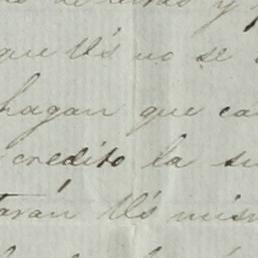 y
que V's no se
hagan que ca
credito la su
tarán V's mism